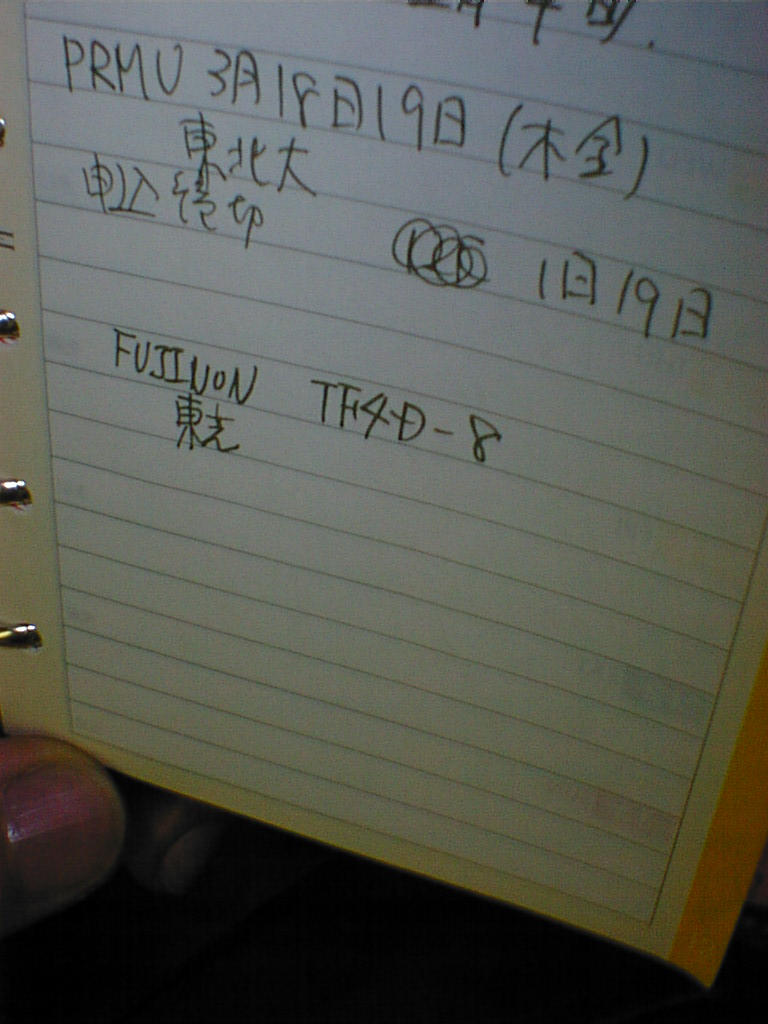 PRMU 3月18日19日 (木金)
東北大
申込締切 1月19日
FUJINON TF4D-8
東光